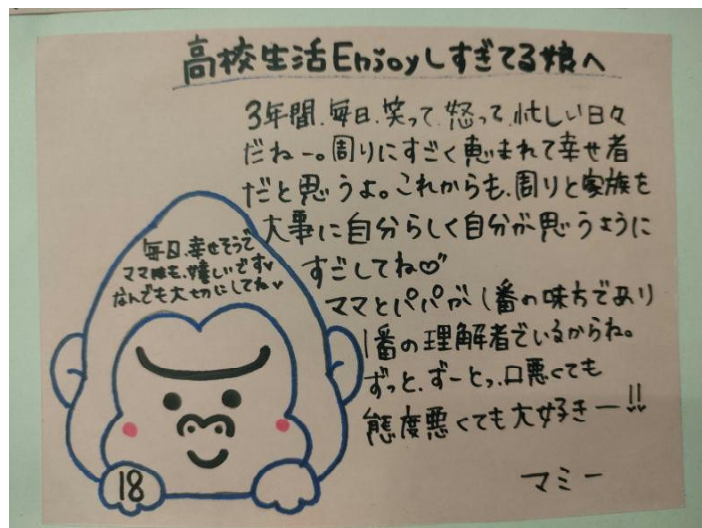 高校生活Enjoyしすぎてる娘へ
3年間、毎日、笑って、怒って、忙しい日々
だねー。周りにすごく恵まれて幸せ者
だと思うよ。これからも、周りと家族を
大事に自分らしく自分が思うように
すごしてね♡
ママとパパが1番の味方であり
1番の理解者でいるからね。
ずっと、ずーとっ、口悪くても
態度悪くても大好きー!!
マミー
毎日、幸せそうで
ママ達も、嬉しいです♥
なんでも大切にしてね♥
18